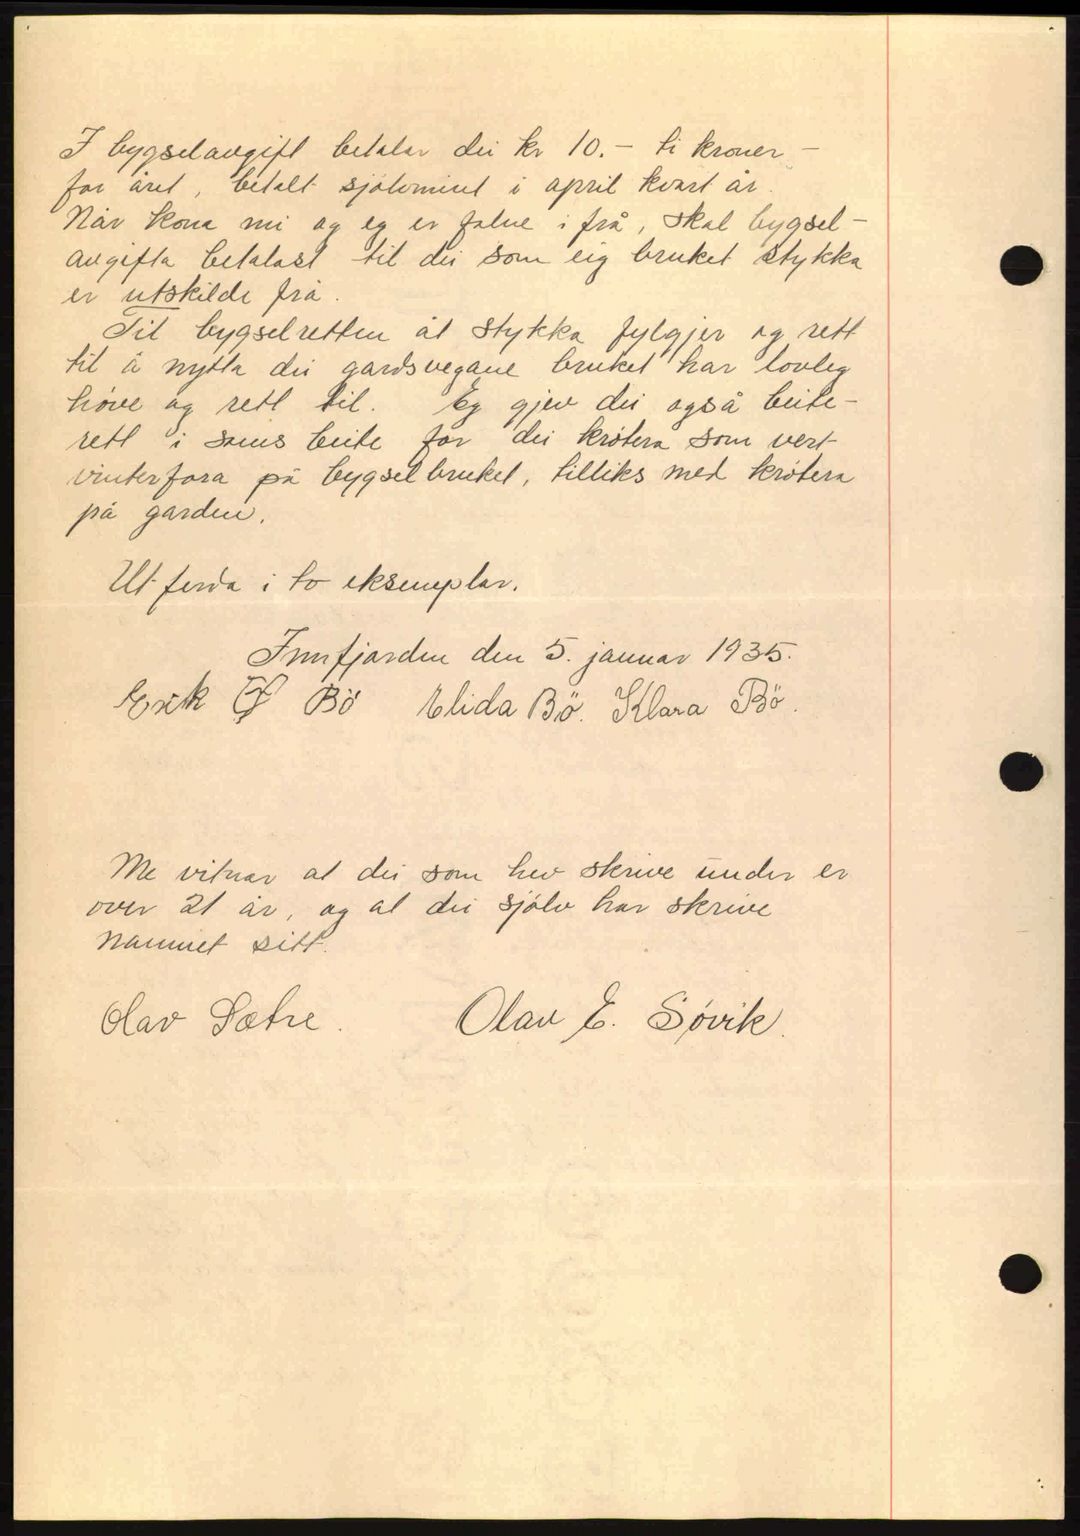 I bygselavgift betalar dei kr 10.- ti kroner -
for året, betalt sjølvmint i april kvart år.
Når kona mi og eg er falne i frå, skal bygsel-
avgifta betalast til dei som eig bruket stykka
er utskilde frå.
Til bygselretten åt stykka fylgjer og rett
til å nytta dei gardsvegane bruket har lovleg
høve og rett til. Eg gjev dei også beite-
rett i sams beite for dei krøtera som vert
vinterfora på bygselbruket, tilliks med krøtera
på garden.
Utferda i to eksemplar.
Innfjorden den 5. januar 1935.
Erik Ø Bö Elida Bö. Klara Bö.
Me vitnar at dei som hev skrive under er
over 21 år, og at dei sjølv har skrive
namnet sitt.
Olav Sætre.
Olav E. Søvik.